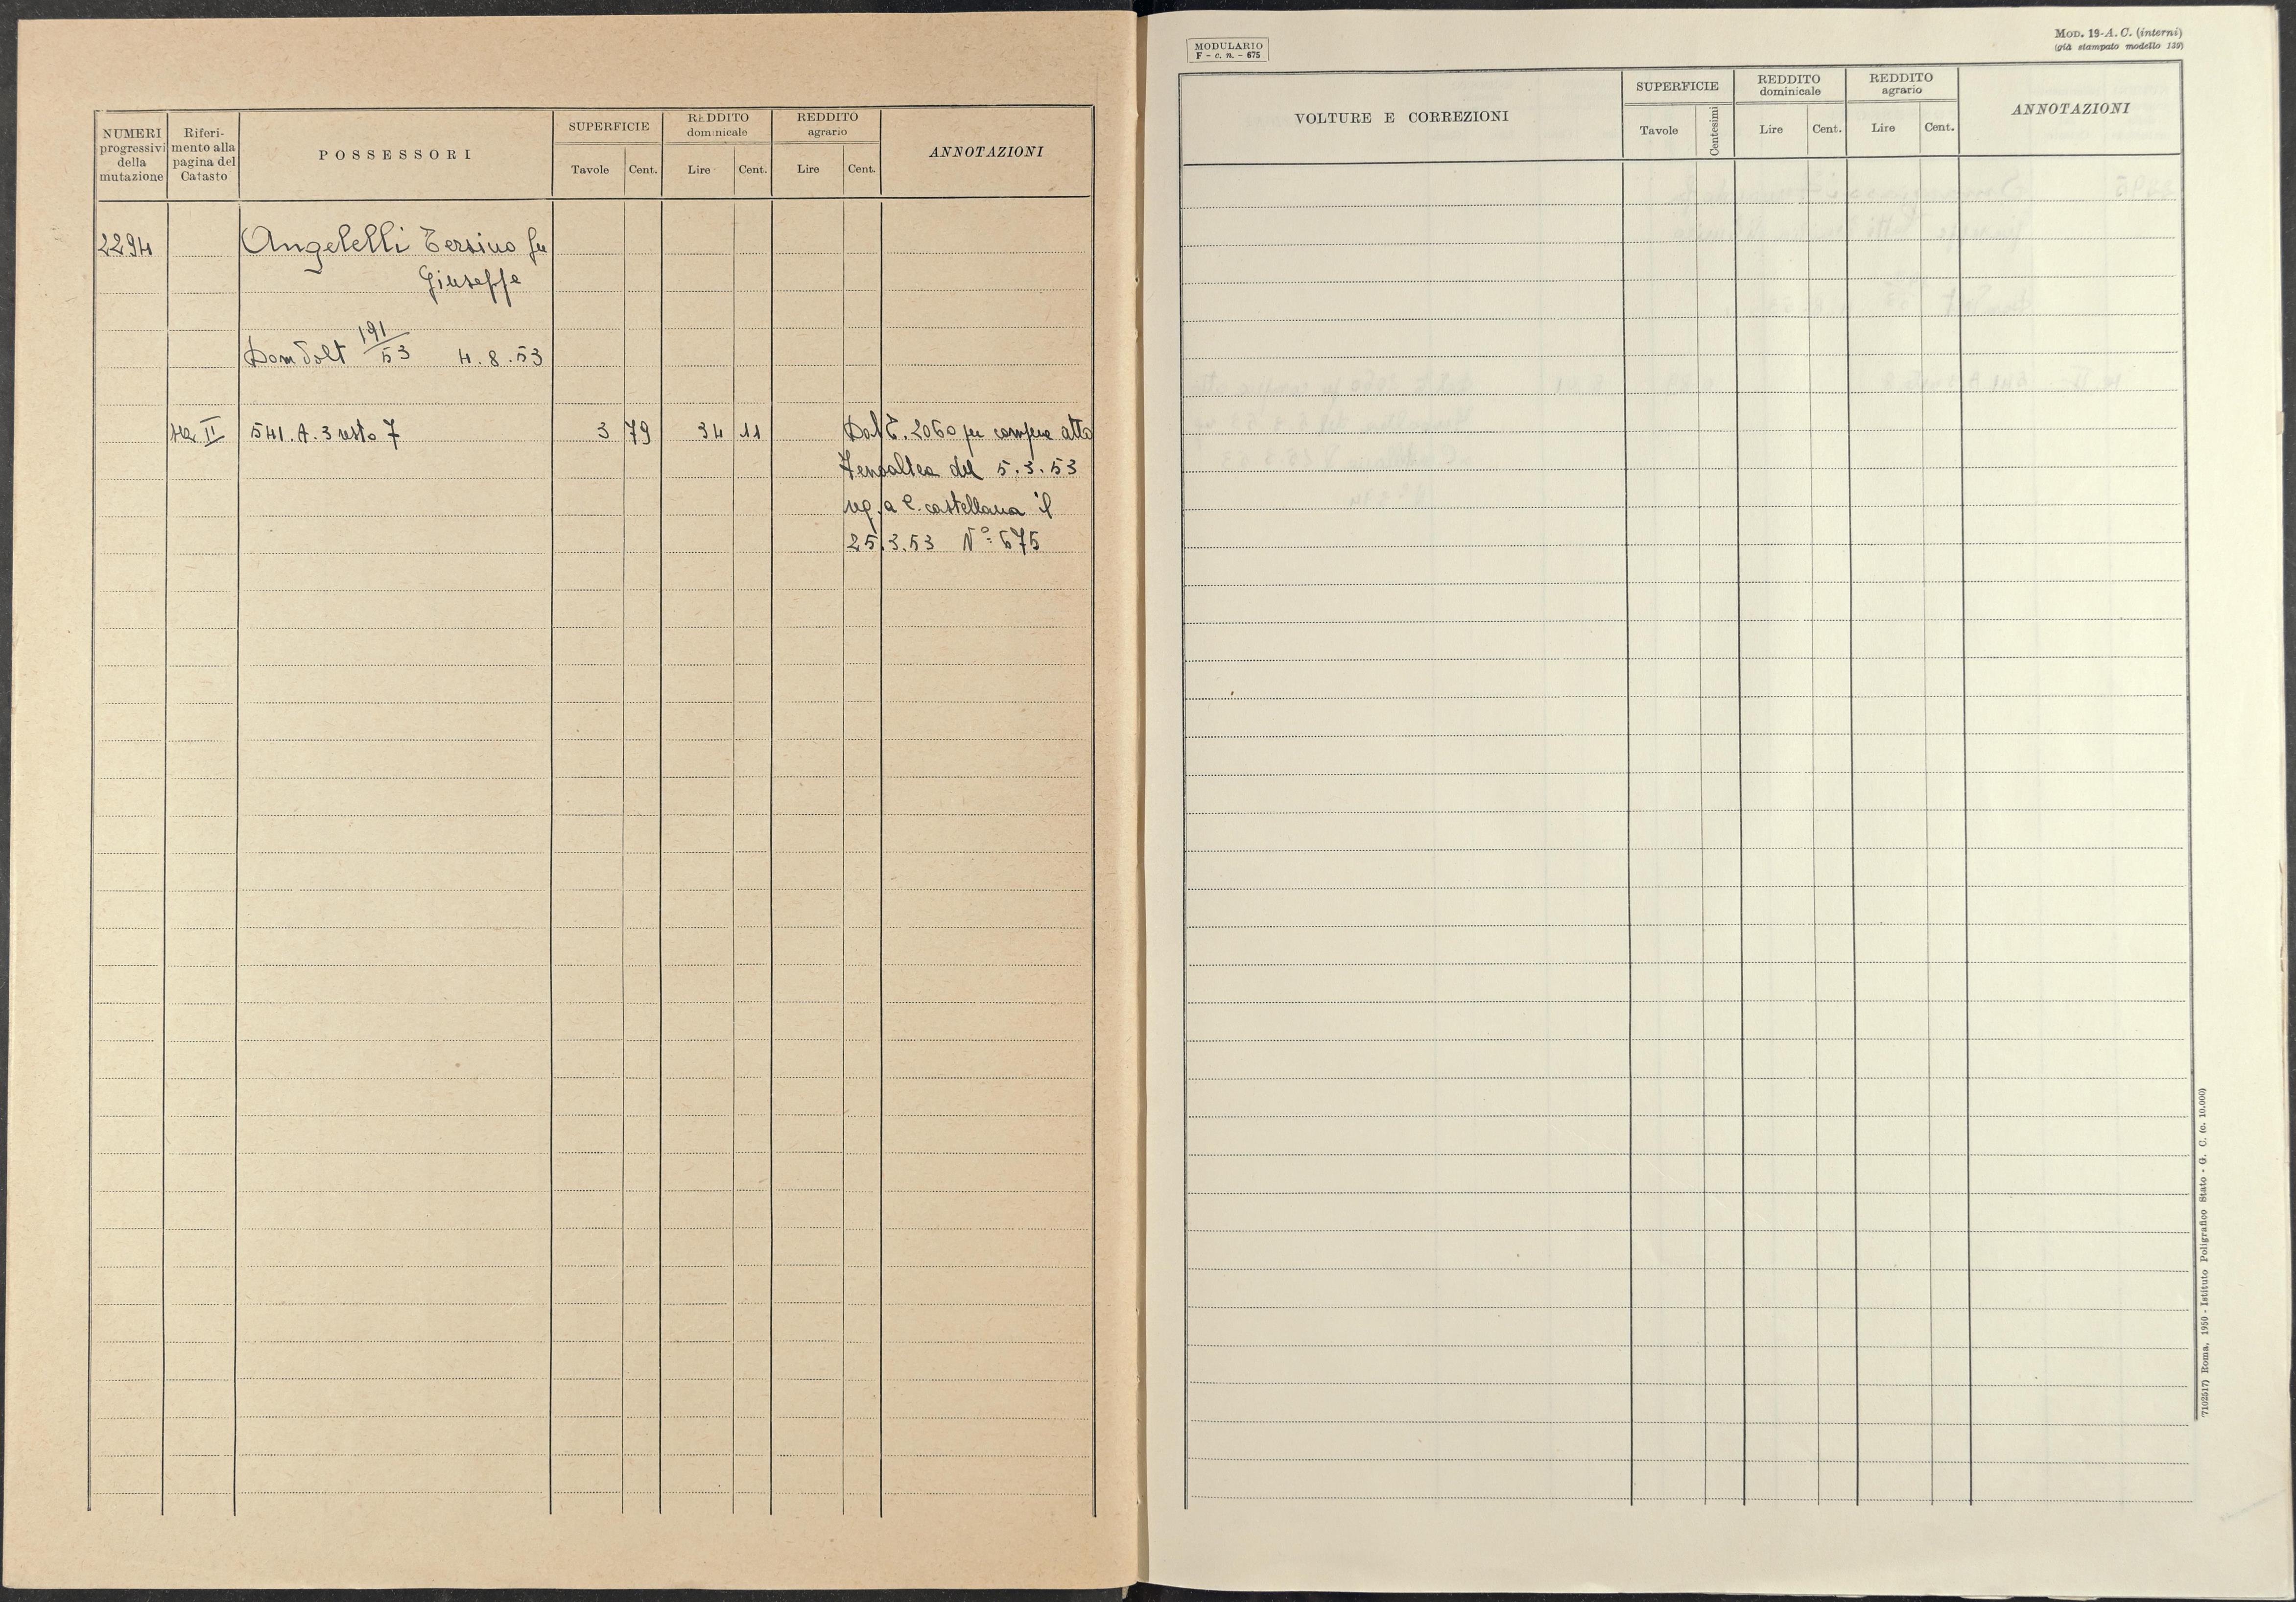 NUMERI progressivi della mutazione
Riferimento alla pagina del Catasto
POSSESSORI
SUPERFICIE
Tavole Cent.
REDDITO dominicale
Lire Cent.
REDDITO agrario
Lire Cent.
ANNOTAZIONI
2294 Angelelli Tersino fu
Giuseppe
Dom Volt 191/53 4.8.53
II 541.A.3 resto 7 3 79 34 11 Dal T. 2060 per compra atto
del 5.3.53
reg. a C. castellana il
25.3.53 Nº 675
MODULARIO
F - c. n. - 675
MOD. 19-A. C. (interni)
(già stampato modello 139)
VOLTURE E CORREZIONI
SUPERFICIE
Tavole Centesimi
REDDITO dominicale
Lire Cent.
REDDITO agrario
Lire Cent.
ANNOTAZIONI
7102517) Roma, 1950 - Istituto Poligrafico Stato - G. C. (c. 10.000)